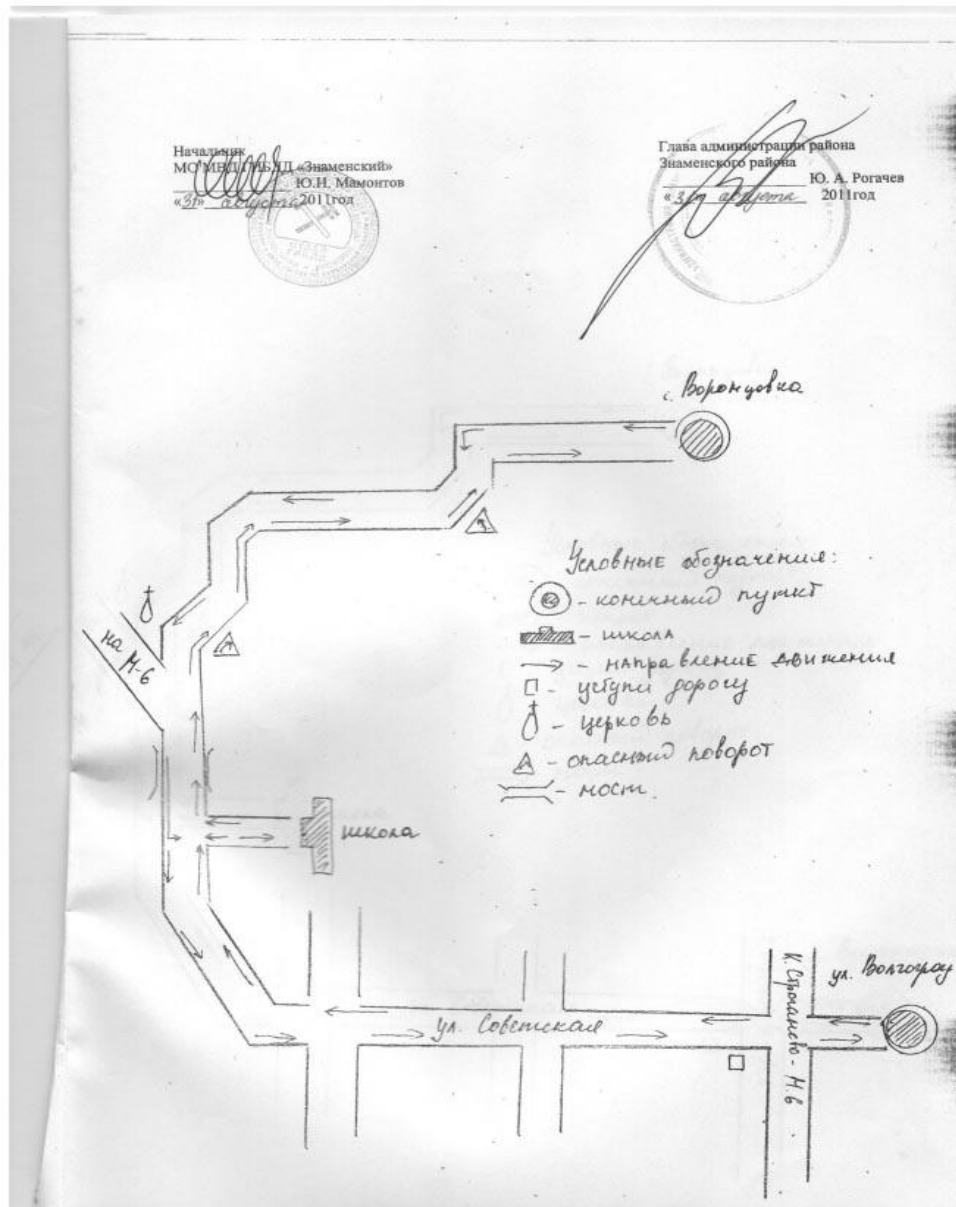 Начальник
МО МВД ГИБДД «Знаменский»
Ю.Н. Мамонтов
«31» августа 2011год
Глава администрации района
Знаменского района
Ю. А. Рогачев
«31» августа 2011год
с. Воронцовка
Условные обозначения:
- конечный пункт
- школа
- направление движения
- уступи дорогу
- церковь
- опасный поворот
- мост.
на М-6
школа
ул. Советская
К. Строганово - М.6
ул. Волгоград